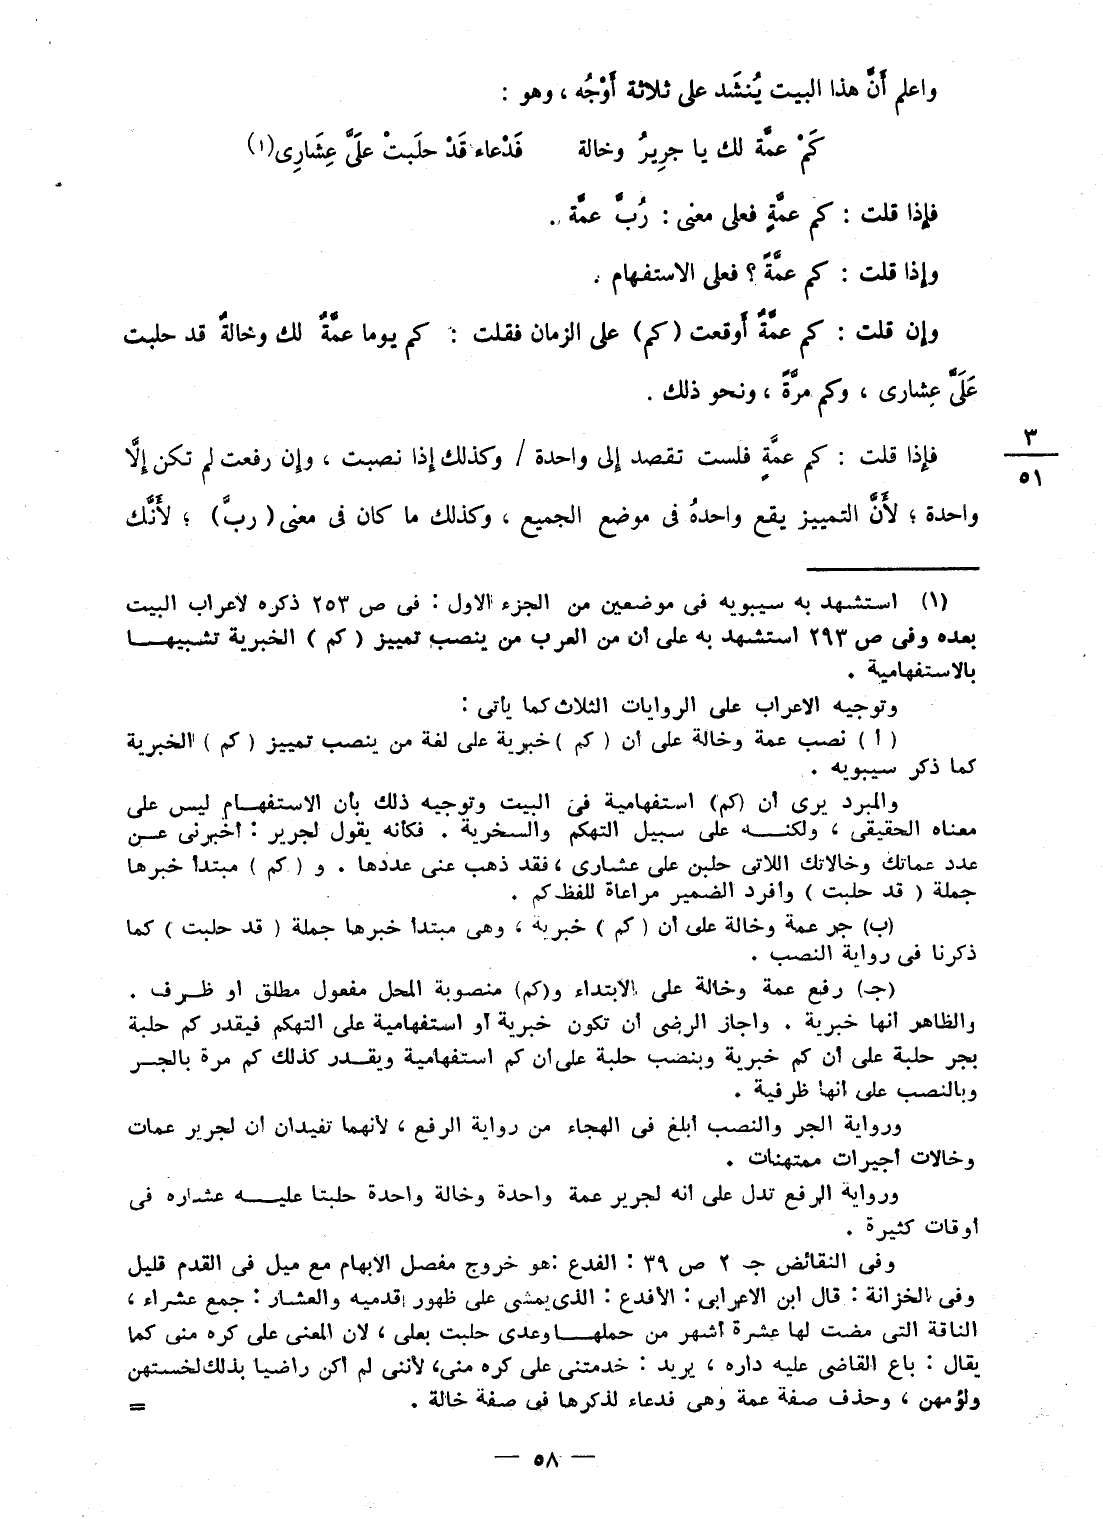 واعلم أَنَّ هذا البيت يُنشَد على ثلاثة أَوْجُه ، وهو :
كَمْ عمَّة لك يا جرِيرُ وخالة فَدْعاء قَدْ حلَبتْ علَىَّ عِشَارِى(١)
فإذا قلت : كم عمَّةٍ فعلى معنى : رُبَّ عمَّة .
وإذا قلت : كم عمَّةً ؟ فعلى الاستفهام .
وإن قلت : كم عمَّةٌ أَوقعت (كم) على الزمان فقلت : كم يوما عمَّةٌ لك وخالةٌ قد حلبت
عَلَىَّ عِشارى ، وكم مرَّةً ، ونحو ذلك .
فإذا قلت : كم عمَّةٍ فلست تقصد إلى واحدة / وكذلك إذا نصبت ، وإن رفعت لم تكن إلَّا
٣
٥١
واحدة ؛ لأَنَّ التمييز يقع واحدهُ فى موضع الجميع ، وكذلك ما كان فى معنى ( ربَّ ) ؛ لأَنَّك
(١) استشهد به سيبويه فى موضعين من الجزء الاول : فى ص ٢٥٣ ذكره لاعراب البيت
بعده وفى ص ٢٩٣ استشهد به على أن من العرب من ينصب تمييز ( كم ) الخبرية تشبيهـــا
بالاستفهامية .
وتوجيه الاعراب على الروايات الثلاث كما يأتى :
( أ ) نصب عمة وخالة على أن ( كم ) خبرية على لغة من ينصب تمييز ( كم ) الخبرية
كما ذكر سيبويه .
والمبرد يرى أن (كم) استفهامية فى البيت وتوجيه ذلك بأن الاستفهـــام ليس على
معناه الحقيقى ، ولكنـــه على سبيل التهكم والسخرية . فكأنه يقول لجرير : أخبرنى عــن
عدد عماتك وخالاتك اللاتى حلبن على عشارى ، فقد ذهب عنى عددها . و ( كم ) مبتدأ خبرها
جملة ( قد حلبت ) وأفرد الضمير مراعاة للفظ كم .
(ب) جر عمة وخالة على أن ( كم ) خبرية ، وهى مبتدأ خبرها جملة ( قد حلبت ) كما
ذكرنا فى رواية النصب .
(جـ) رفع عمة وخالة على الابتداء و(كم) منصوبة المحل مفعول مطلق او ظـرف .
والظاهر أنها خبرية . واجاز الرضى أن تكون خبرية أو استفهامية على التهكم فيقدر كم حلبة
بجر حلبة على أن كم خبرية وبنصب حلبة على أن كم استفهامية ويقـــدر كذلك كم مرة بالجــر
وبالنصب على أنها ظرفية .
ورواية الجر والنصب أبلغ فى الهجاء من رواية الرفع ، لأنهما تفيدان أن لجرير عمات
وخالات أجيرات ممتهنات .
ورواية الرفع تدل على أنه لجرير عمة واحدة وخالة واحدة حلبتا عليـــه عشاره فى
أوقات كثيرة .
وفى النقائض جـ ٢ ص ٣٩ : الفدع :هو خروج مفصل الابهام مع ميل فى القدم قليل
وفى الخزانة : قال ابن الاعرابى : الأفدع : الذى يمشى على ظهور قدميه والعشار : جمع عشراء ،
الناقة التى مضت لها عشرة أشهر من حملهـــا وعدى حلبت بعلى ، لان المعنى على كره منى كما
يقال : باع القاضى عليه داره ، يريد : خدمتنى على كره منى، لأننى لم أكن راضيا بذلك لخستهن
ولؤمهن ، وحذف صفة عمة وهى فدعاء لذكرها فى صفة خالة .
=
— ٥٨ —